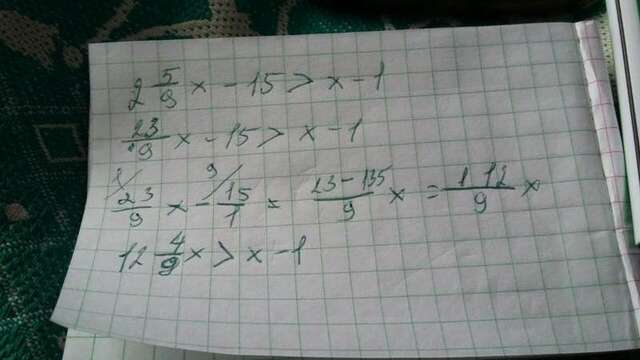 2 5/9 x - 15 > x - 1
23/9 x - 15 > x - 1
1/ 23/9 x - 9/ 15/1 = 23-135/9 x = 112/9 x
12 4/9 x > x - 1